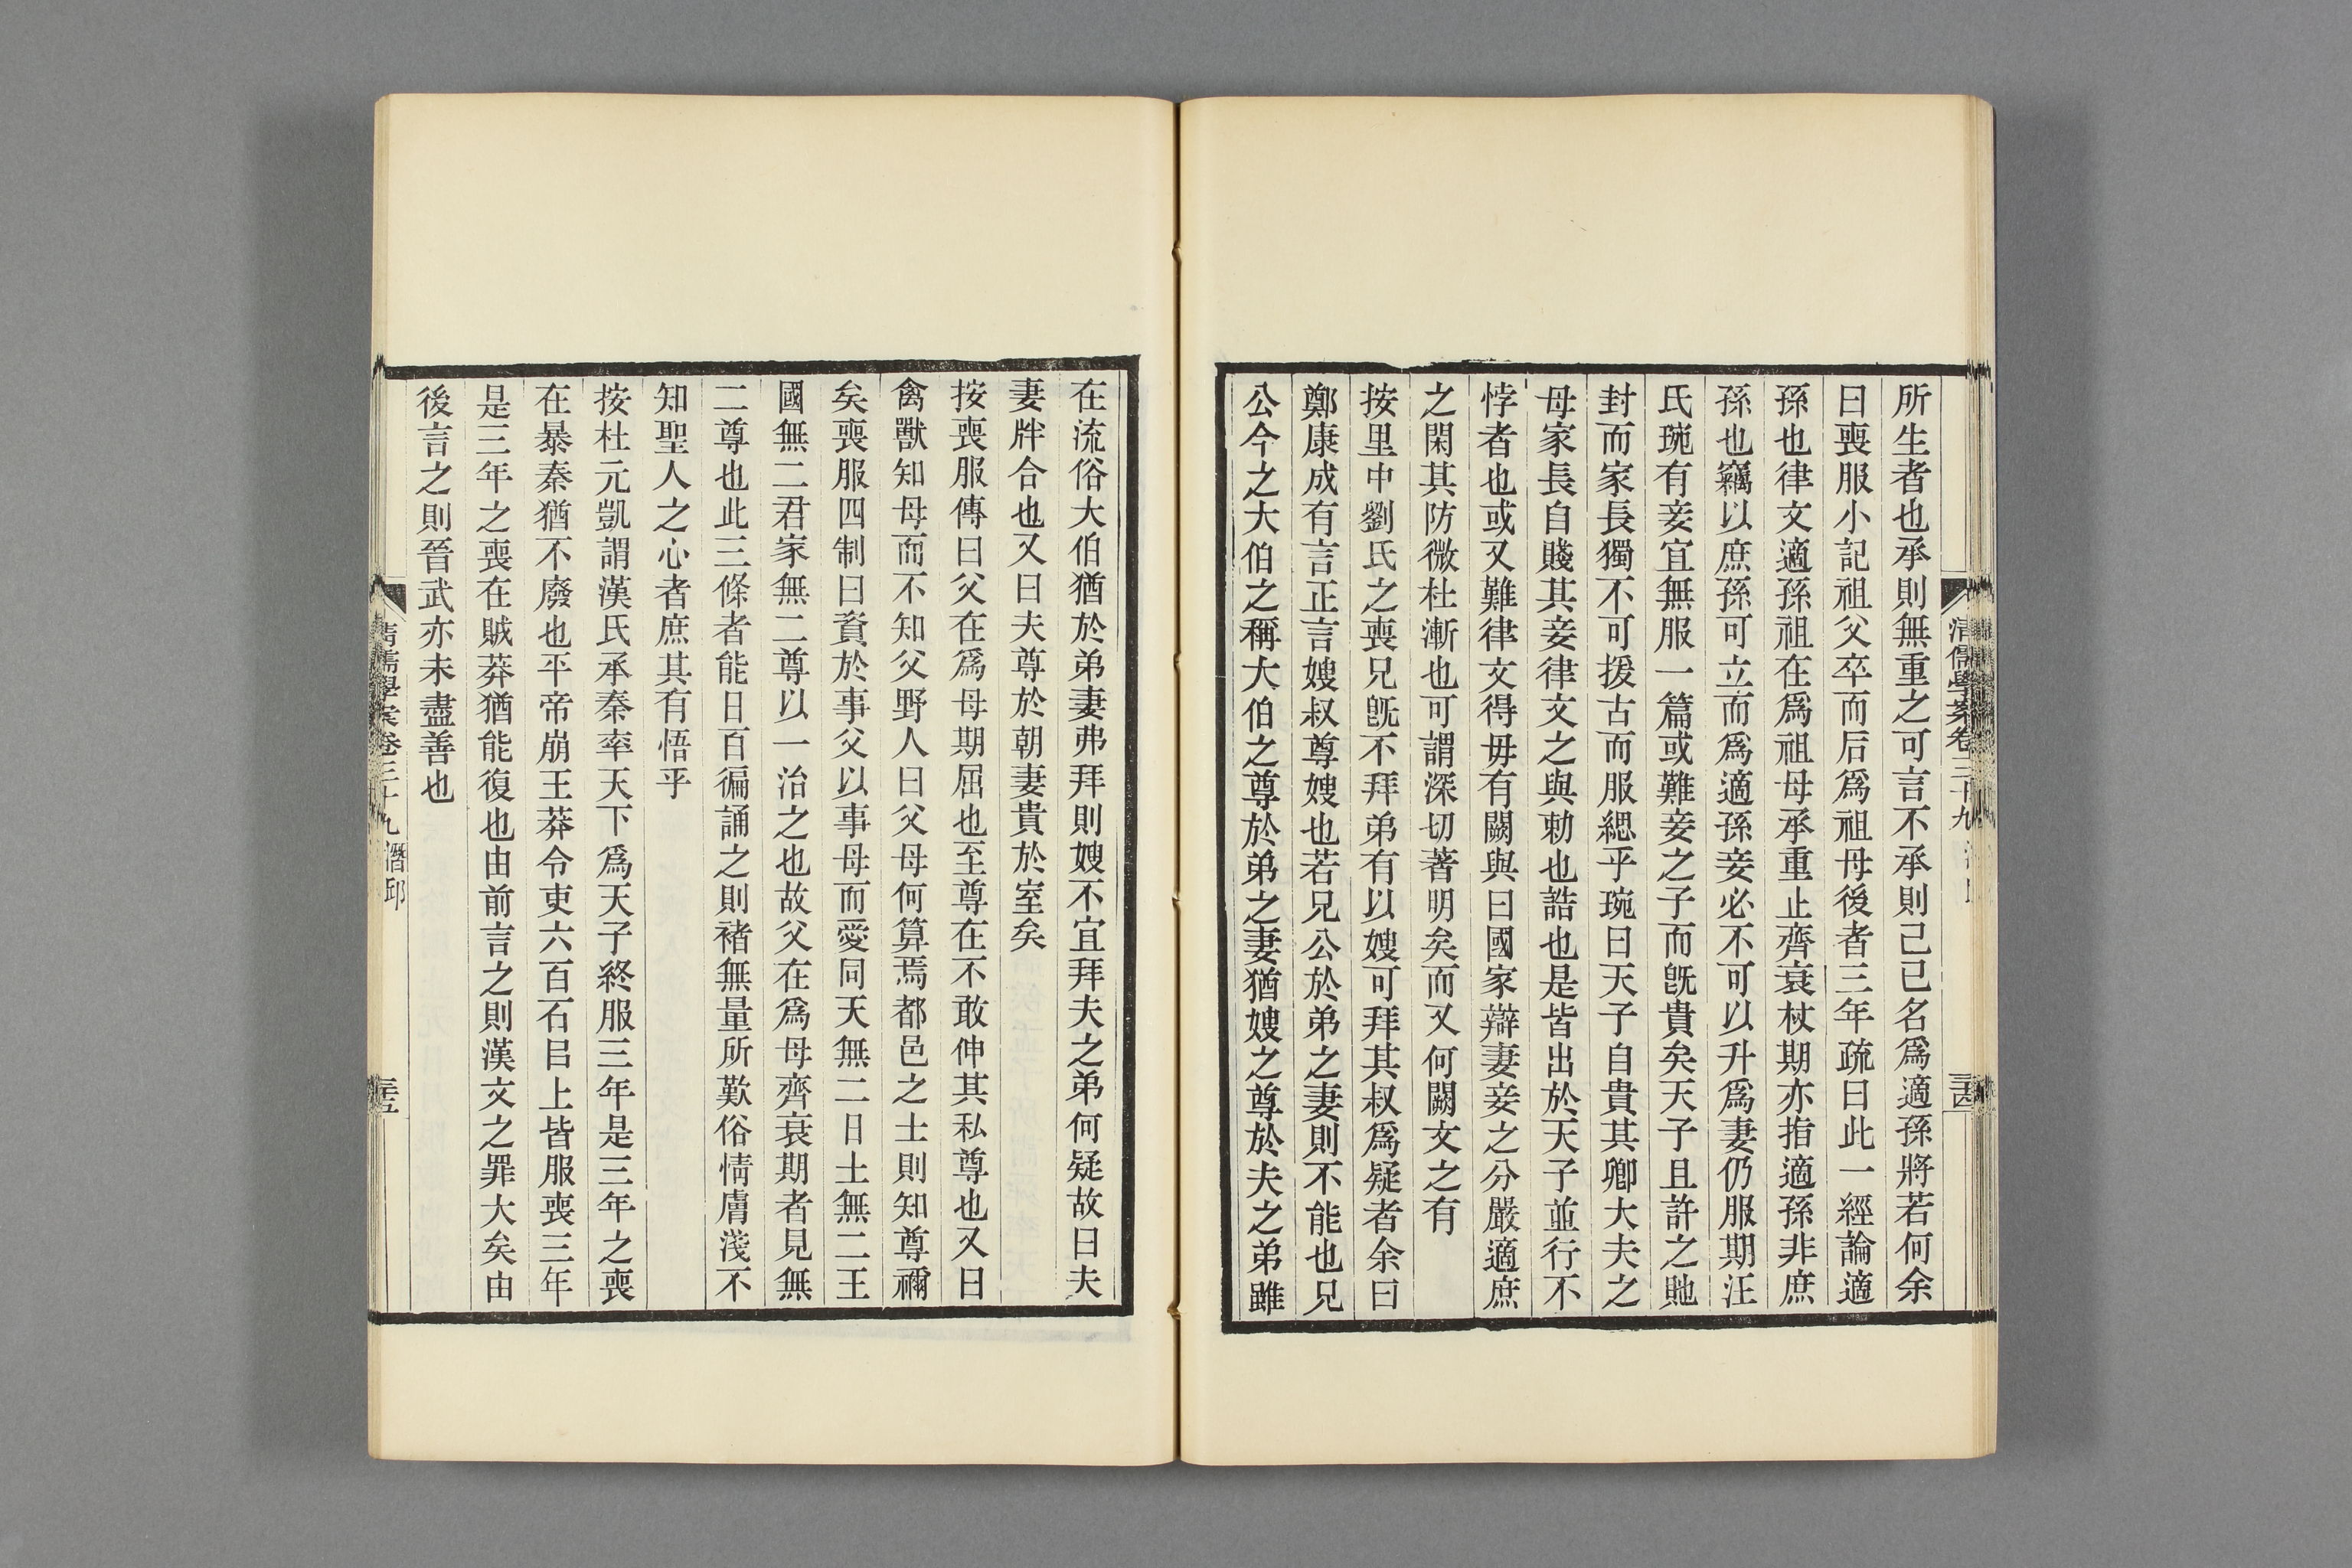 清儒學案卷三十九
三十四
所生者也承則無重之可言不承則己已名爲適孫將若何余
曰喪服小記祖父卒而后爲祖母後者三年疏曰此一經論適
孫也律文適孫祖在爲祖母承重止齊衰杖期亦指適孫非庶
孫也竊以庶孫可立而爲適孫妾必不可以升爲妻仍服期汪
氏琬有妾宜無服一篇或難妾之子而旣貴矣天子且許之貤
封而家長獨不可援古而服緦乎琬曰天子自貴其卿大夫之
母家長自賤其妾律文之與勅也誥也是皆出於天子並行不
悖者也或又難律文得毋有闕與曰國家辯妻妾之分嚴適庶
之閑其防微杜漸也可謂深切著明矣而又何闕文之有
按里中劉氏之喪兄旣不拜弟有以嫂可拜其叔爲疑者余曰
鄭康成有言正言嫂叔尊嫂也若兄公於弟之妻則不能也兄
公今之大伯之稱大伯之尊於弟之妻猶嫂之尊於夫之弟雖
在流俗大伯猶於弟妻弗拜則嫂不宜拜夫之弟何疑故曰夫
妻牉合也又曰夫尊於朝妻貴於室矣
按喪服傳曰父在爲母期屈也至尊在不敢伸其私尊也又曰
禽獸知母而不知父野人曰父母何算焉都邑之士則知尊禰
矣喪服四制曰資於事父以事母而愛同天無二日土無二王
國無二君家無二尊以一治之也故父在爲母齊衰期者見無
二尊也此三條者能日百徧誦之則褚無量所歎俗情膚淺不
知聖人之心者庶其有悟乎
按杜元凱謂漢氏承秦率天下爲天子終服三年是三年之喪
在暴秦猶不廢也平帝崩王莽令吏六百石㠯上皆服喪三年
是三年之喪在賊莽猶能復也由前言之則漢文之罪大矣由
後言之則晉武亦未盡善也
清儒學案卷三十九 潛邱
三十五